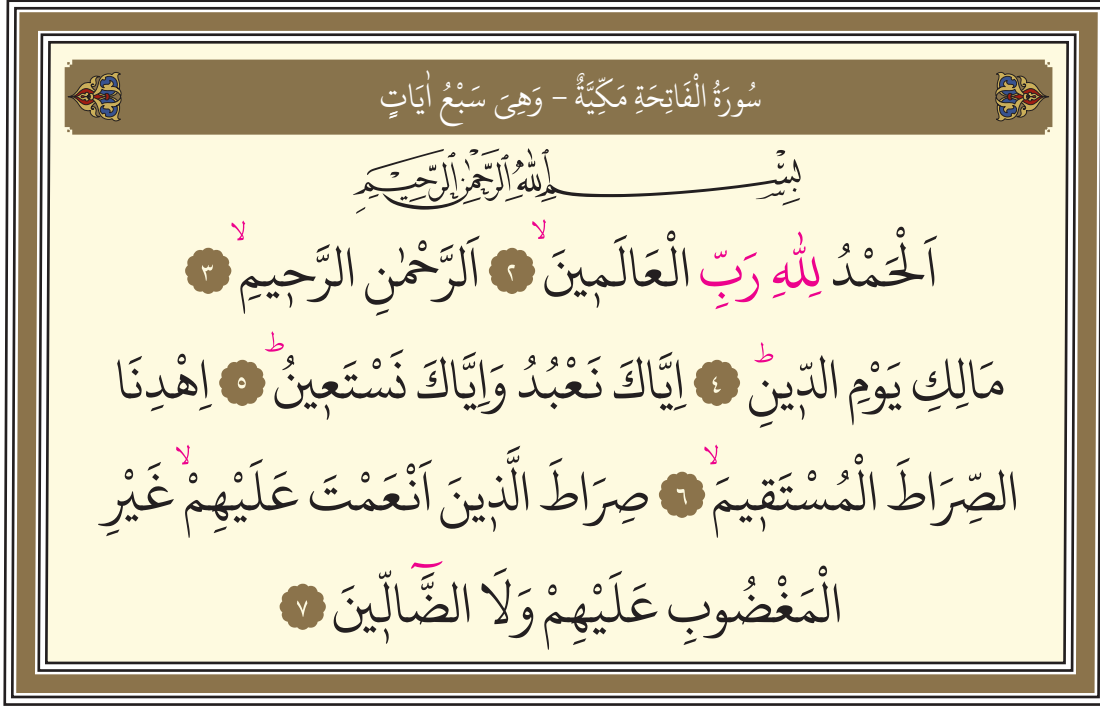 سُورَةُ الْفَاتِحَةِ مَكِّيَّةٌ – وَهِىَ سَبْعُ اٰيَاتٍ
بِسْمِ اللّٰهِ الرَّحْمٰنِ الرَّحِيمِ
اَلْحَمْدُ لِلّٰهِ رَبِّ الْعَالَمٖينَۙ ٢ اَلرَّحْمٰنِ الرَّحٖيمِۙ ٣
مَالِكِ يَوْمِ الدّٖينِؕ ٤ اِيَّاكَ نَعْبُدُ وَاِيَّاكَ نَسْتَعٖينُؕ ٥ اِهْدِنَا
الصِّرَاطَ الْمُسْتَقٖيمَۙ ٦ صِرَاطَ الَّذٖينَ اَنْعَمْتَ عَلَيْهِمْۙ غَيْرِ
الْمَغْضُوبِ عَلَيْهِمْ وَلَا الضَّٓالّٖينَ ٧